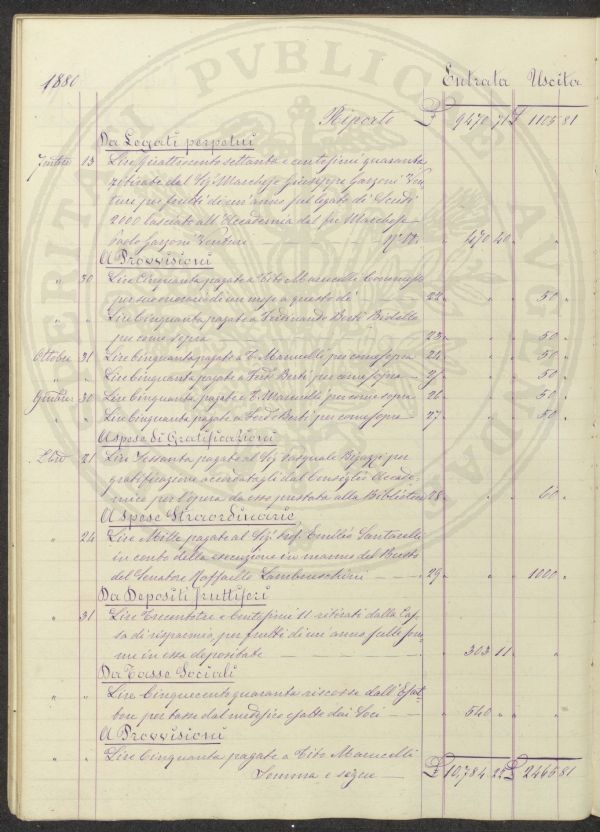 1880 Entrata Uscita
Riporto £ 9470 71 £ 1105 81
Da Legati perpetui
13 Lire Quattrocento settanta e centesimi quaranta
ritirate dal Sig. Marchese Giuseppe Garzoni Ven-
turi per frutti di un'anno sul legato di Scudi
2000 lasciato all'Accademia dal fu Marchese
Paolo Garzoni Venturi — 470 40 "
A Provvisioni
" 30 Lire Cinquanta pagate a Tito Marucelli Commesso
per suo onorario di un mese a questo dì — 22 " " 50 "
" " Lire Cinquanta pagate a Ferdinando Berti Bidello
per come sopra — 23 " " 50 "
Ottobre 31 Lire Cinquanta pagate a T. Marucelli per come sopra 24 " " 50 "
" " Lire Cinquanta pagate a Ferd. Berti per come sopra 25 " " 50 "
30 Lire Cinquanta pagate a T. Marucelli per come sopra 26 " " 50 "
" " Lire Cinquanta pagate a Ferd. Berti per come sopra 27 " " 50 "
A Spese di Gratificazioni
21 Lire Sessanta pagate al Sig. Pasquale Bigazzi per
gratificazione accordatagli dal Consiglio Accade-
mico per l'opera da esso prestata alla Biblioteca 28 " " 60 "
A Spese Straordinarie
" 24 Lire Mille pagate al Sig. Prof. Emilio Santarelli
in conto della esecuzione in marmo del Busto
del Senatore Raffaello Lambruschini — 29 " " 1000 "
Da Depositi fruttiferi
" 31 Lire Trecentotre e Centesimi 11 ritirati dalla Cas-
sa di risparmio per frutti di un anno sulle som-
me in essa depositate — 303 11 " "
Da Tasse Sociali
" " Lire Cinquecentoquaranta riscosse dall'Esat-
tore per tasse dal medesimo esatte dai Soci — 540 " " "
A Provvisioni
" " Lire Cinquanta pagate a Tito Marucelli
Somma e segue — £ 10,784 22 £ 2465 81